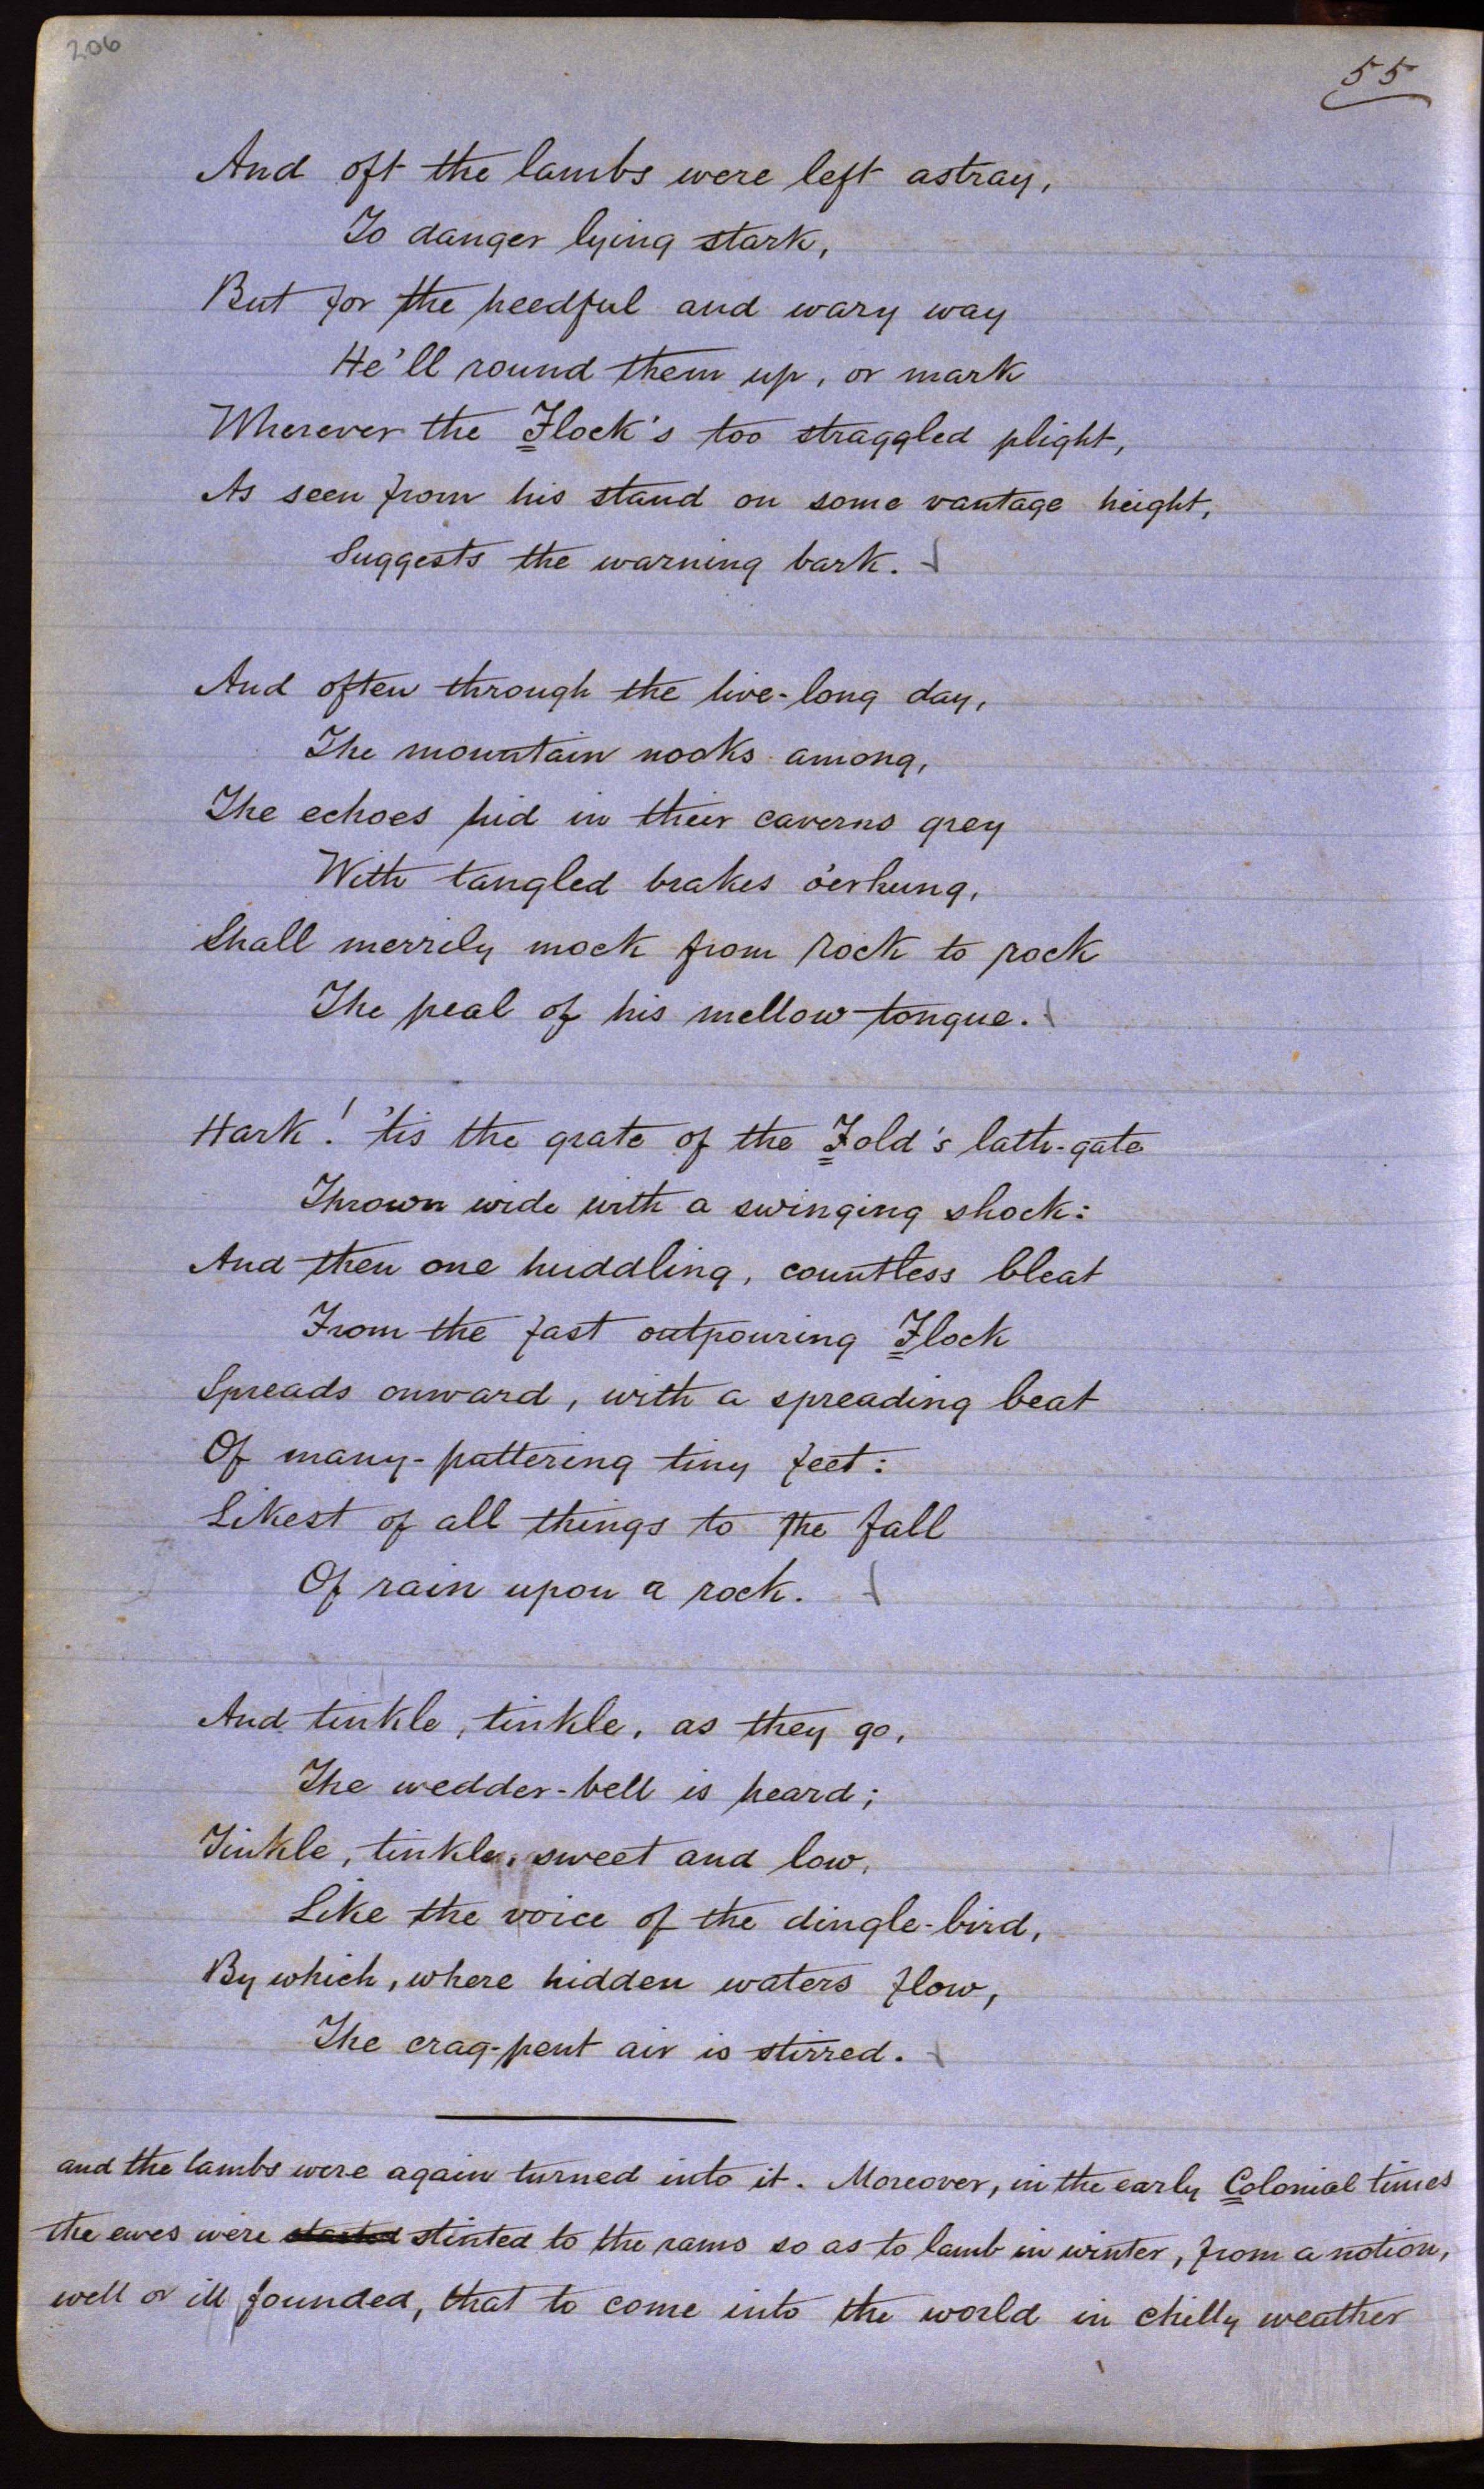 206
55
And oft the lambs were left astray,
To danger lying stark,
But for the heedful and wary way
He'll round them up, or mark
Wherever the Flock's too straggled plight,
As seen from his stand on some vantage height,
Suggests the warning bark.
And often through the live-long day,
The mountain nooks among,
The echoes hid in their caverns grey
With tangled brakes o'erhung,
Shall merrily mock from rock to rock
The peal of his mellow tongue.
Hark! 'tis the grate of the Fold's lath-gate
Thrown wide with a swinging shock:
And then one huddling, countless bleat
From the fast outpouring Flock
Spreads onward, with a spreading beat
Of many-pattering tiny feet:
Likest of all things to the fall
Of rain upon a rock.
And tinkle, tinkle, as they go,
The wedder-bell is heard;
Tinkle, tinkle, sweet and low,
Like the voice of the dingle-bird,
By which, where hidden waters flow,
The crag-pent air is stirred.
and the lambs were again turned into it. Moreover, in the early Colonial times
the ewes were stinted to the rams so as to lamb in winter, from a notion,
well or ill founded, that to come into the world in chilly weather